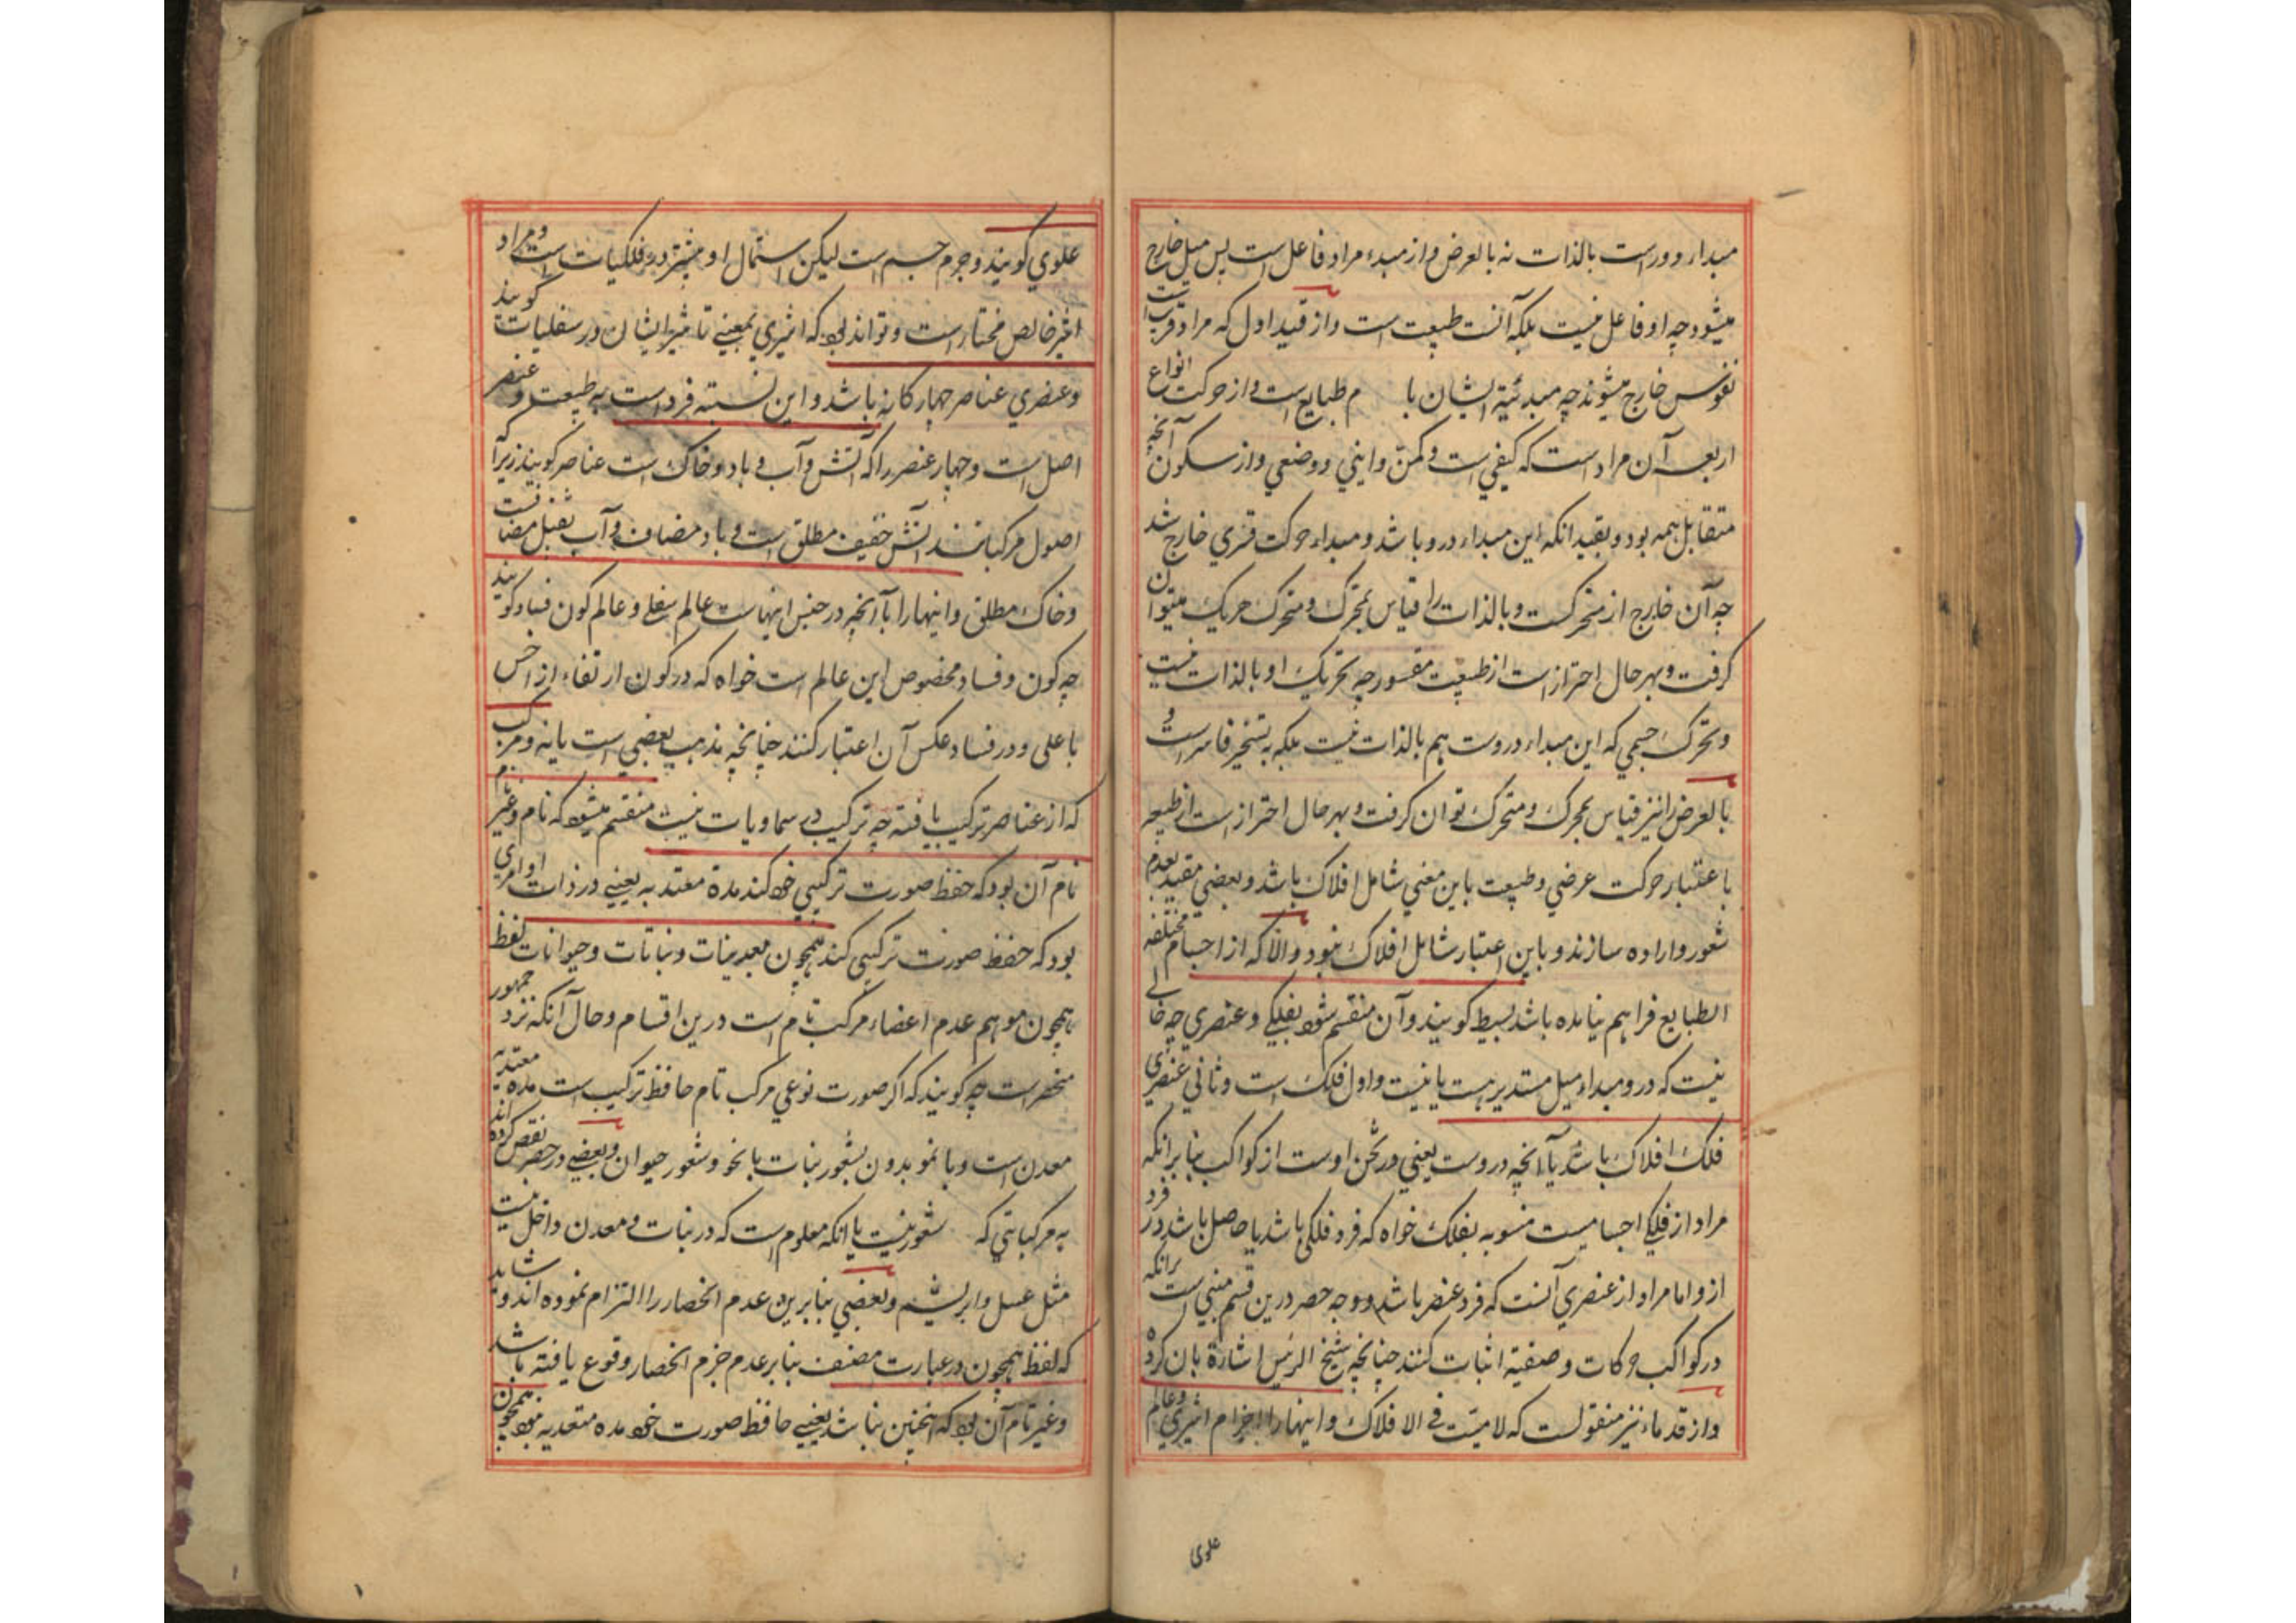 مبداء دور است بالذات نه بالعرض و از مبدء مراد فاعل است پس میل خارج
میشود چه او فاعل نیست بلکه آلت طبیعت است و از قید اول که مراد قریب است
نفوس خارج میشوند چه مبدئیة ایشان با م طبایع است و از حرکت انواع
اربعه آن مراد است که کیفی است و کمی و اینی و وضعی و از سکون آنچه
متقابل همه بود و بقید انکه این مبداء درو باشد و مبداء حرکت قسری خارج شد
چه آن خارج از متحرکست و بالذات را قیاس بمحرک و متحرک هریک میتوان
کرفت و بهر حال احتراز است از طبیعت مقسور چه تحریک او بالذات نیست
و تحرک جسمی که این مبداء دروست هم بالذات نیست بلکه به تسخیر قاسر است و
بالعرض را نیز قیاس بمحرک و متحرک توان کرفت و بهر حال احتراز است از طبیعه
باعتبار حرکت عرضی و طبیعت باین معنی شامل افلاک باشد و بعضی مقید بعدم
شعور و اراده سازند و باین اعتبار شامل افلاک نبود و الا که از اجسام مختلفه
الطبایع فراهم نیامده باشد بسیط کویند و آن منقسم شود بفلکی و عنصری چه خالی
نیست که درو مبداء میل مستدیر هست یا نیست و اول فلک است و ثانی عنصری
فلک افلاک باشد یا آنچه دروست یعنی در ثخن اوست از کواکب بنا بر انکه
مراد از فلکی اجسامیست منسوبه بفلک خواه که فرد فلکی باشد یا حاصل باشد در فرد
ازو اما مراد از عنصری آنست که فرد عنصر باشد و وجه حصر درین قسم مبنی است برانکه
در کواکب حرکات وضعیة اثبات کنند چنانچه شیخ الرئیس اشارة بان کرده
و از قدماء نیز منقولست که لا میت فی الافلاک و اینها را اجرام اثیری و عالم
علوی
علوی کویند و جرم جسم است لیکن استعمال او بیشتر در فلکیات است و مراد
اثیر خالص مختار است و تواند بود که اثیری بمعنی تاثیر ایشان در سفلیات کویند
و عنصری عناصر چهارکانه باشد و این نسبته فرد است به طبیعت و عنصر
اصل است و چهار عنصر را که آتش و آب و باد و خاک است عناصر کویند زیرا که
اصول مرکباتند آتش خفیف مطلق است و باد مضاف و آب ثقیل مضافست
و خاک مطلق و اینها را با آنچه در جنس اینهاست عالم سفلی و عالم کون فساد کویند
چه کون و فساد مخصوص این عالم است خواه که در کون ارتفاء از اخس
باعلی و در فساد عکس آن اعتبار کنند چنانچه مذهب بعضی است یا نه و مرکب
که از عناصر ترکیب یافته چه ترکیب در سماویات نیست منقسم میشود که تام و غیر تام
تام آن بود که حفظ صورت ترکیبی خود کند مدة معتد به یعنی در ذات او امری
بود که حفظ صورت ترکیبی کند همچون معدنیات و نباتات و حیوانات لفظ
همچون موهم عدم اعضاء مرکب تام است درین اقسام و حال آنکه نزد جمهور
منحصر است چه کویند که اکر صورت نوعی مرکب تام حافظ ترکیب است مده معتدبه
معدن است و با نمو بدون شعور نبات با نحو و شعور حیوان و بعضی در حصر نقص کرده اند
به مرکباتی که شعور نیست یا انکه معلوم است که در نبات و معدن داخل نیست
مثل عسل و ابریشم و بعضی بنا برین عدم انحصار را التزام نموده اند و شاید
که لفظ همچون در عبارت مصنف بنا بر عدم جزم انحصار وقوع یافته باشد
و غیر تام آن بود که اینچنین نباشد یعنی حافظ صورت خود مده متعدبه نبود همچون